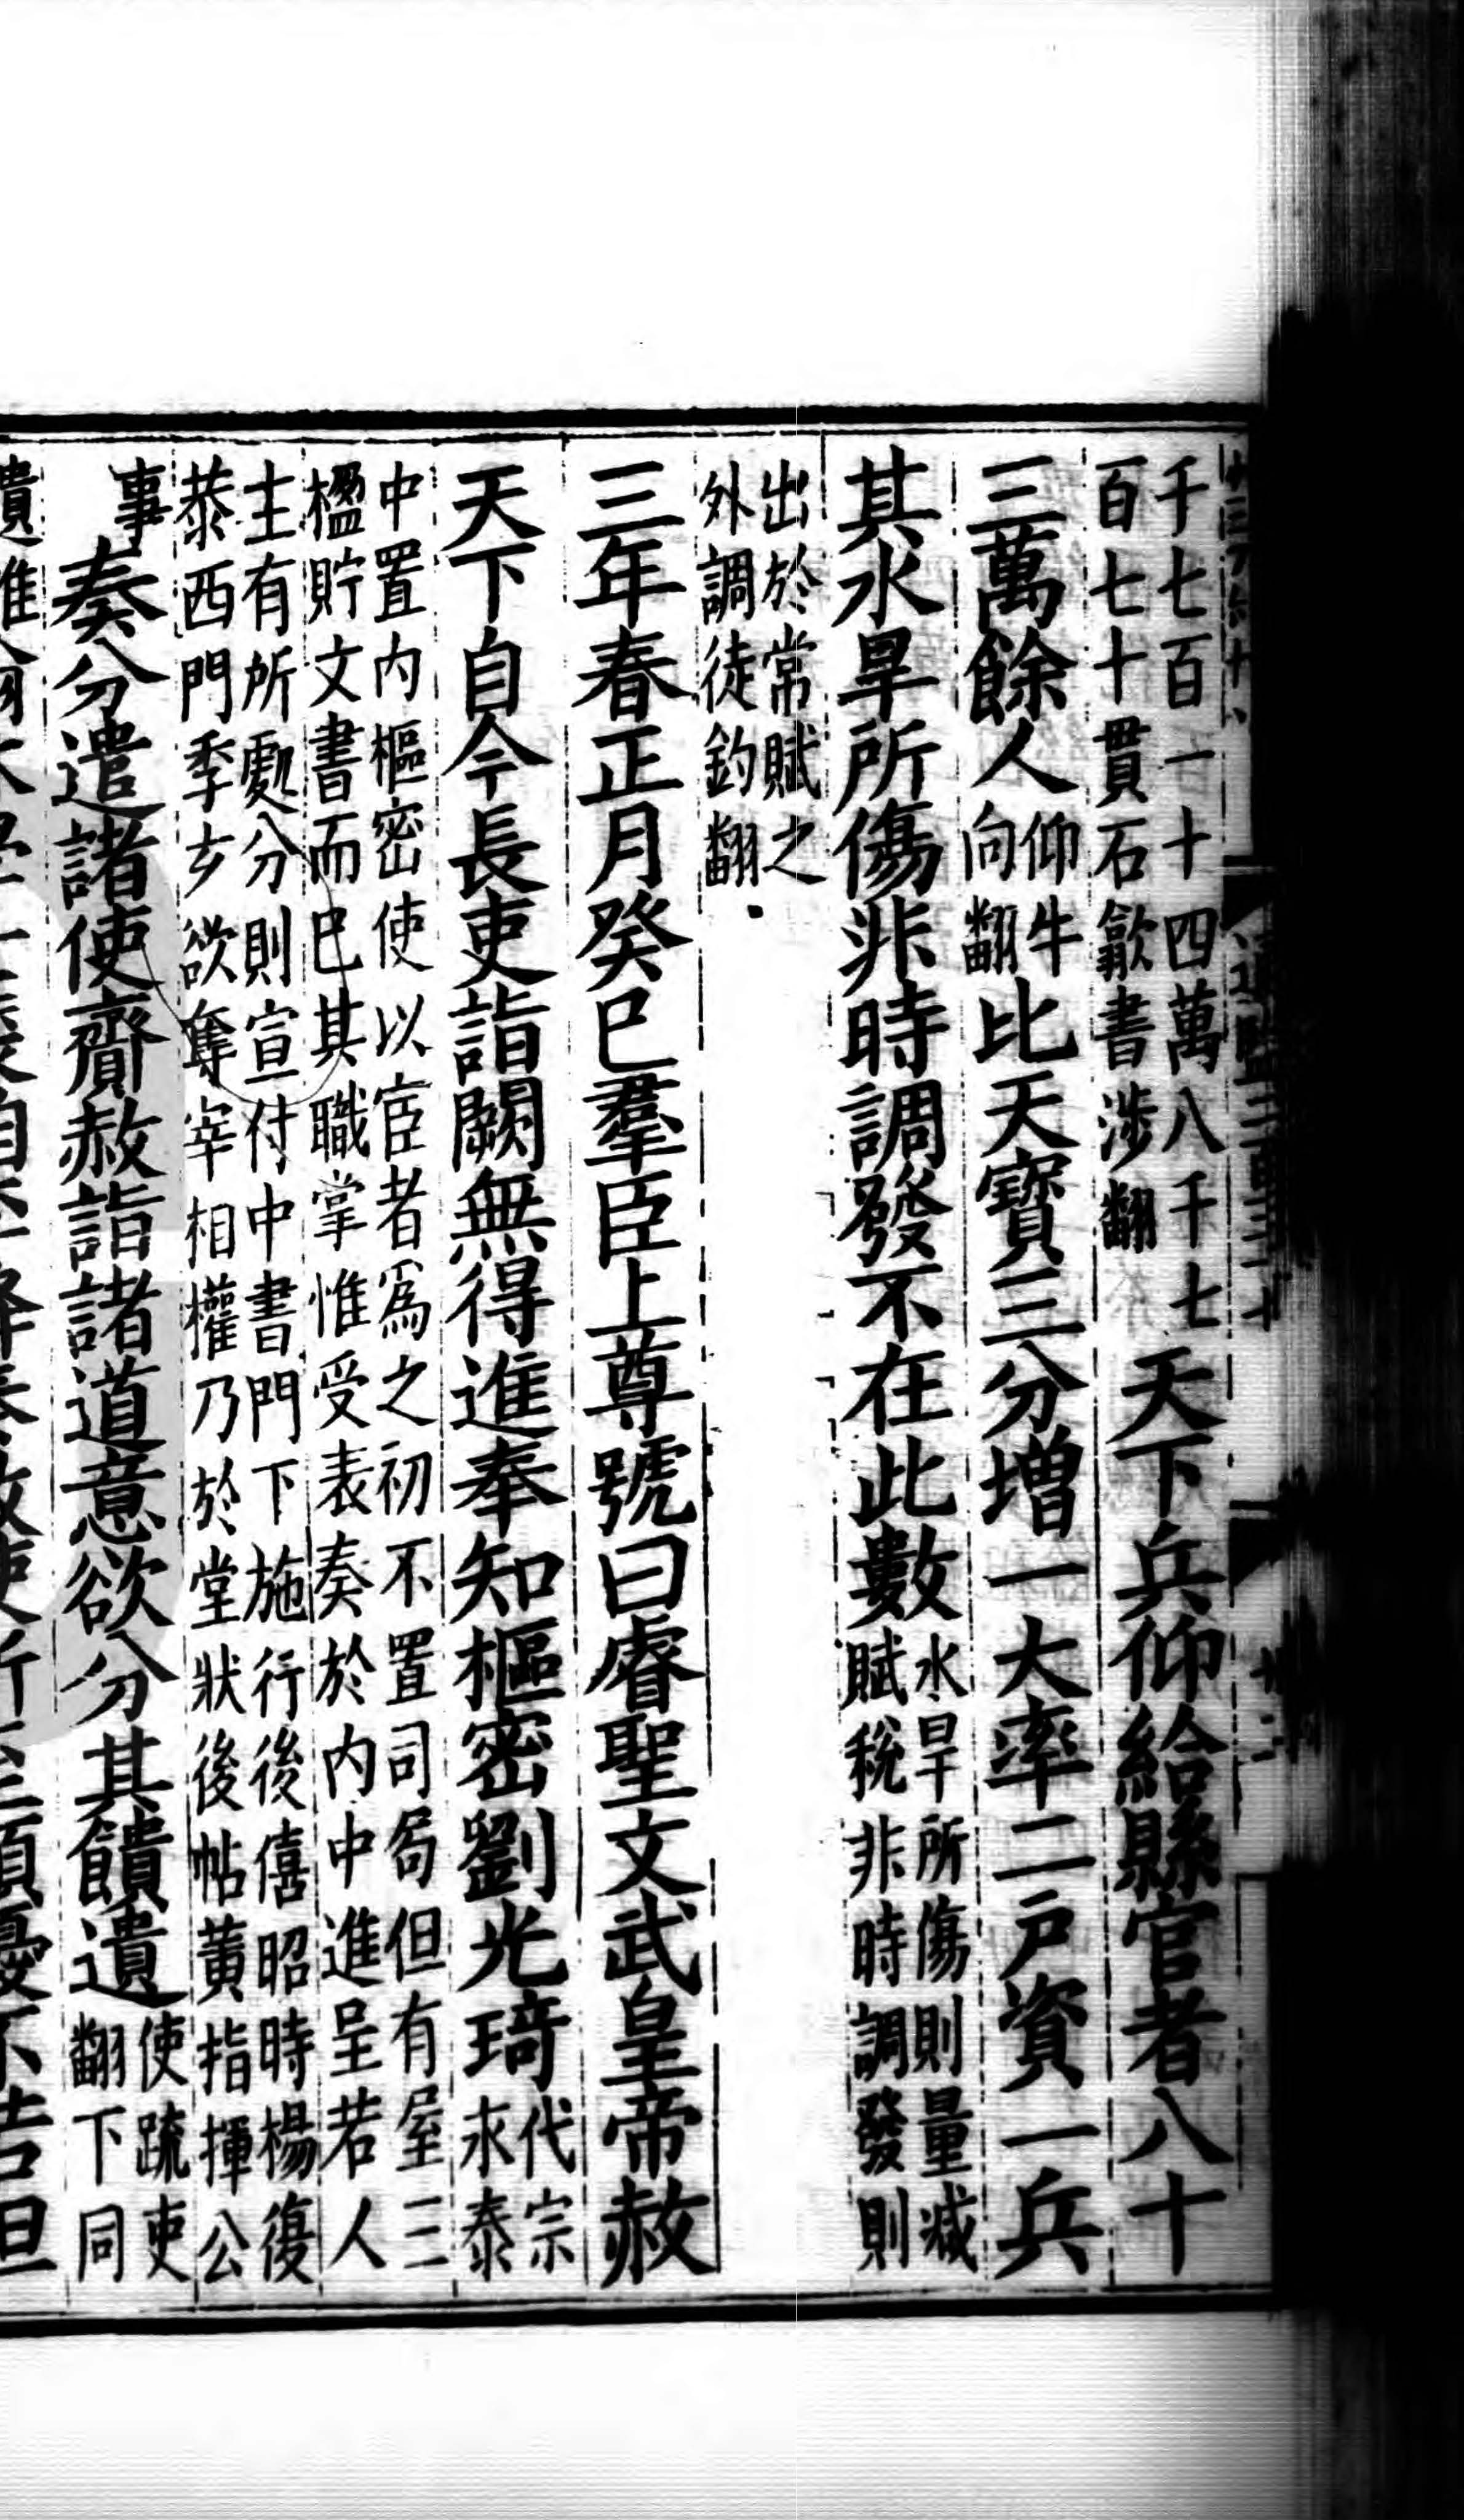 千七百一十四萬八千七
百七十貫石歙書涉翻
天下兵仰給縣官者八十
三萬餘人
仰牛
向翻
比天寶三分增一大率二戶資一兵
其水旱所傷非時調發不在此數
水旱所傷則量減
賦稅非時調發則
出於常賦之
外調徒釣翻
三年春正月癸巳羣臣上尊號曰睿聖文武皇帝赦
天下自今長吏詣闕無得進奉知樞密劉光琦
代宗
永泰
中置內樞密使以宦者爲之初不置司局但有屋三
楹貯文書而已其職掌惟受表奏於內中進呈若人
主有所處分則宣付中書門下施行後僖昭時楊復
恭西門季玄欲奪宰相權乃於堂狀後帖黃指揮公
事
奏分遣諸使齎赦詣諸道意欲分其饋遺
使疏吏
翻下同